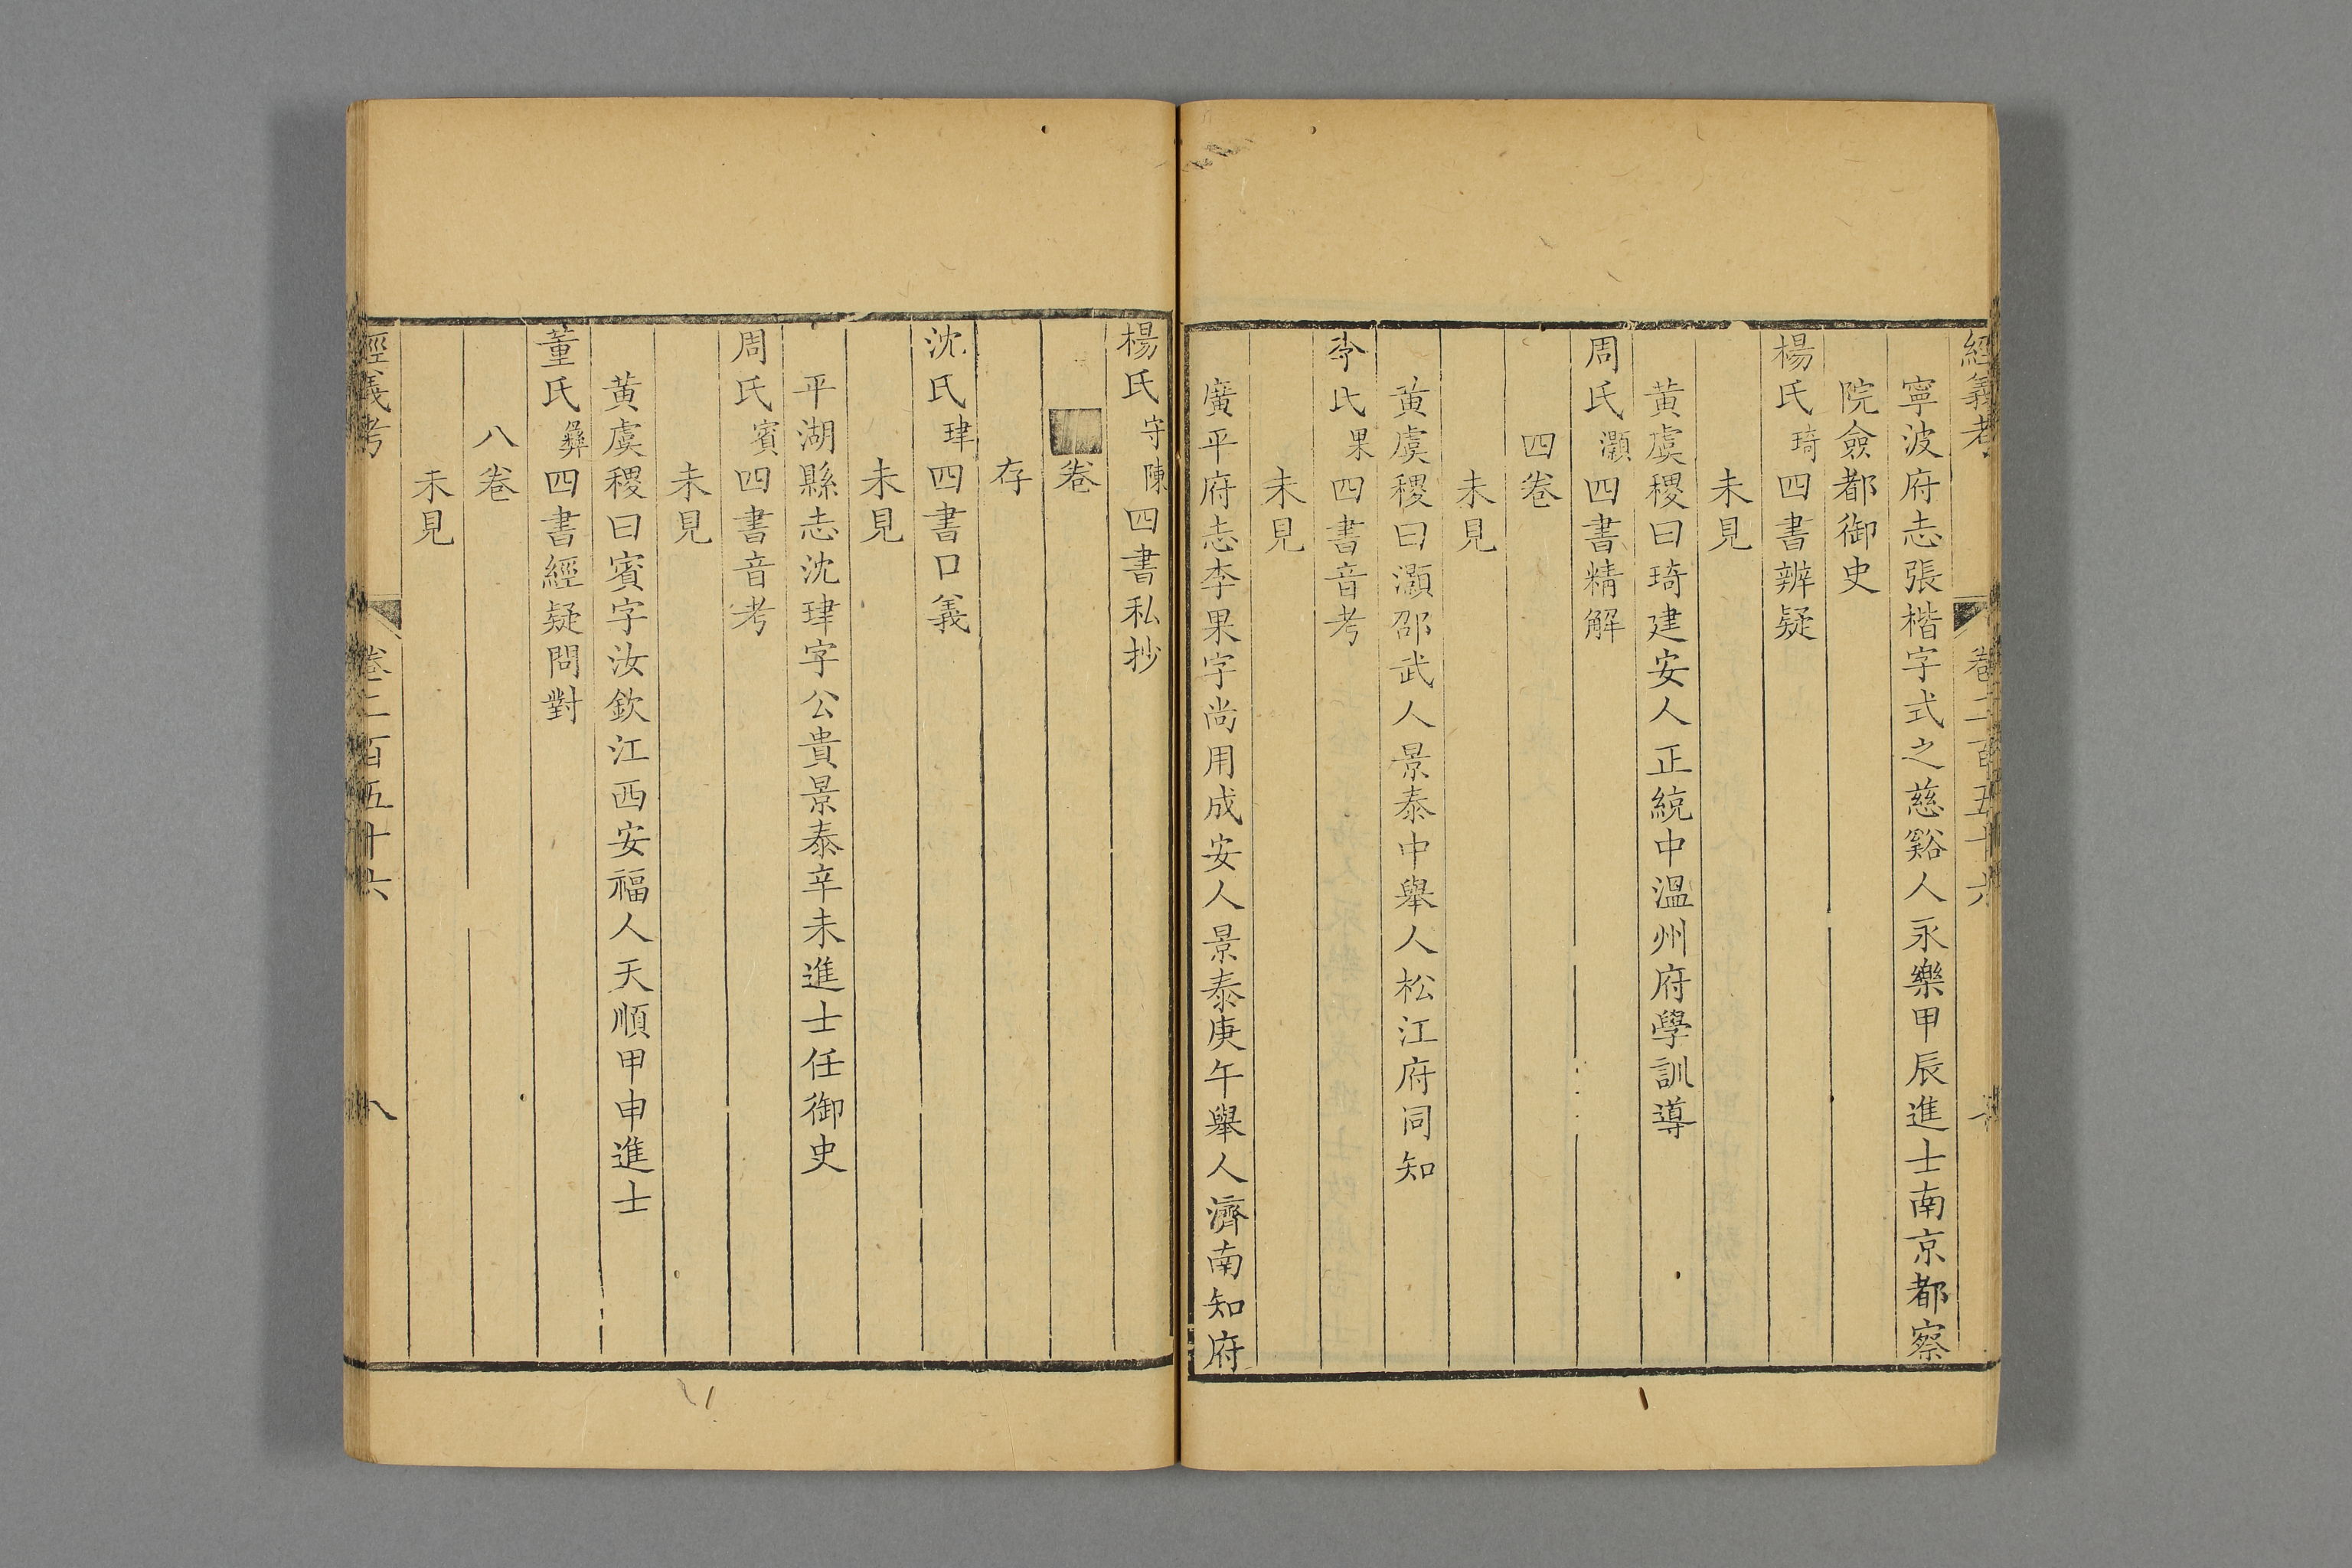 經義考 卷二百五十六
寧波府志張楷字式之慈谿人永樂甲辰進士南京都察
院僉都御史
楊氏琦四書辨疑
未見
黃虞稷曰琦建安人正統中溫州府學訓導
周氏灝四書精解
四卷
未見
黃虞稷曰灝邵武人景泰中舉人松江府同知
李氏果四書音考
未見
廣平府志李果字尚用成安人景泰庚午舉人濟南知府
楊氏守陳四書私抄
卷
存
沈氏珒四書口義
未見
平湖縣志沈珒字公貴景泰辛未進士任御史
周氏賓四書音考
未見
黃虞稷曰賓字汝欽江西安福人天順甲申進士
董氏彝四書經疑問對
八卷
未見
經義考 卷二百五十六 八